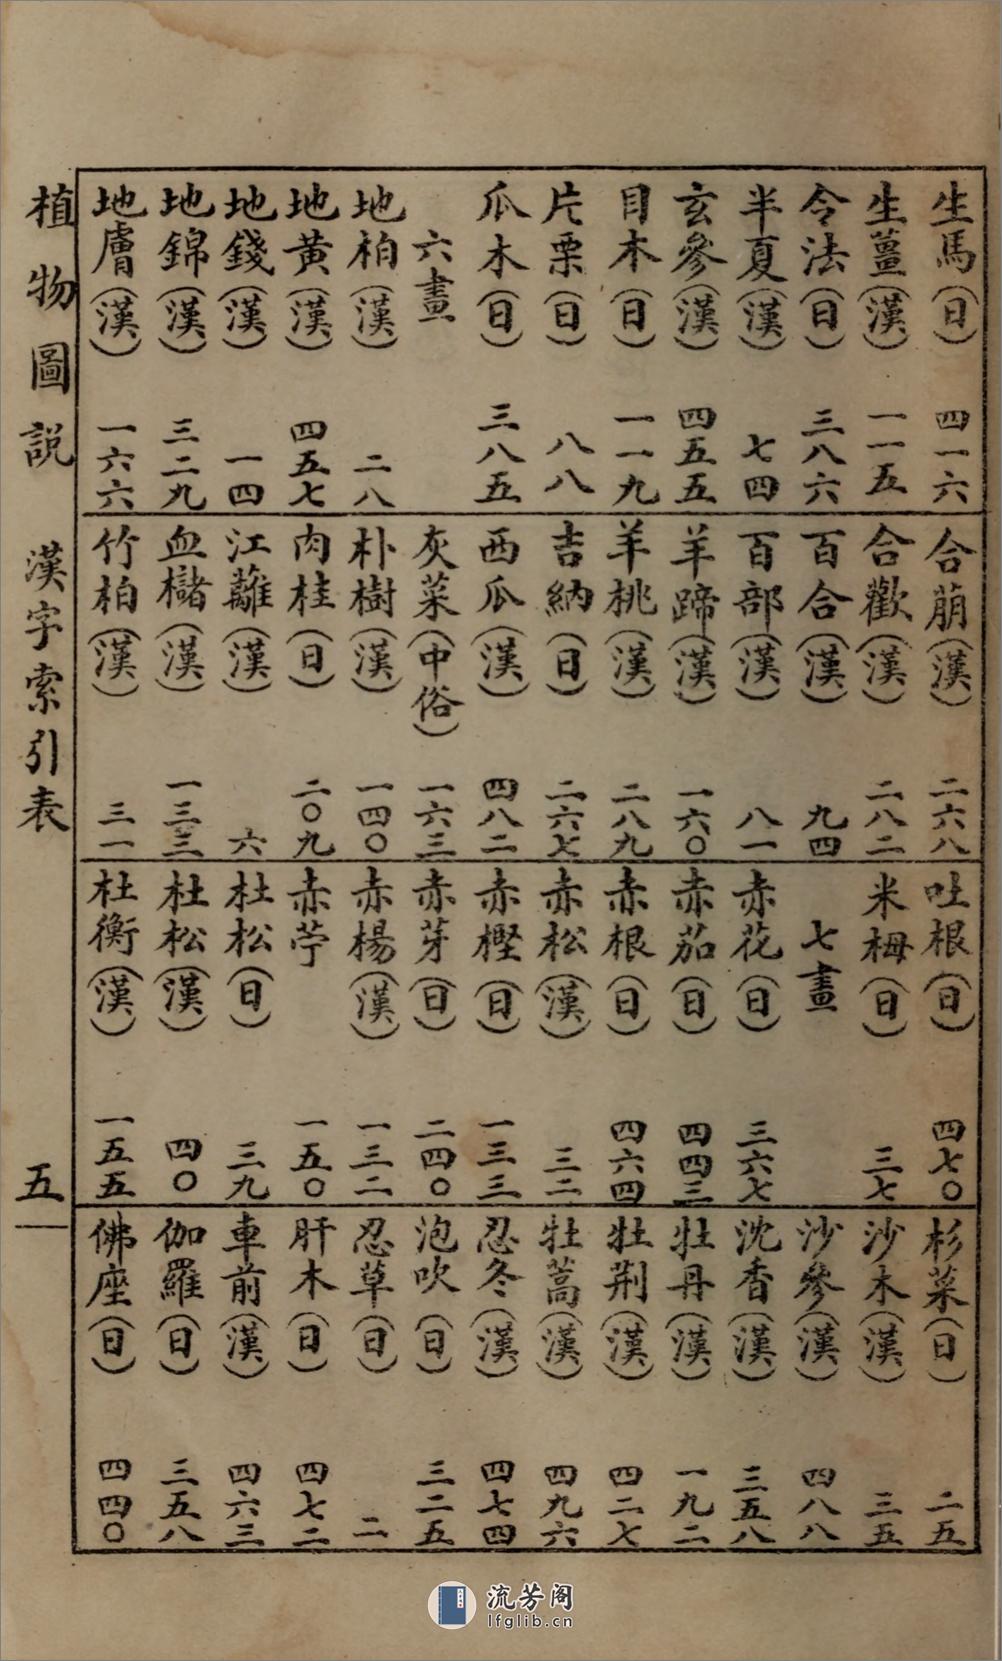 生馬(日) 四一六
生薑(漢) 一一五
令法(日) 三八六
半夏(漢) 七四
玄參(漢) 四五五
目木(日) 一一九
片栗(日) 八八
瓜木(日) 三八五
六畫
地柏(漢) 二八
地黃(漢) 四五七
地錢(漢) 一四
地錦(漢) 三二九
地膚(漢) 一六六
合萠(漢) 二六八
合歡(漢) 二八二
百合(漢) 九四
百部(漢) 八一
羊蹄(漢) 一六〇
羊桃(漢) 二八九
吉納(日) 二六七
西瓜(漢) 四八二
灰菜(中俗) 一六三
朴樹(漢) 一四〇
肉桂(日) 二〇九
江蘺(漢) 六
血櫧(漢) 一三三
竹柏(漢) 三一
吐根(日) 四七〇
米栂(日) 三七
七畫
赤花(日) 三六七
赤茄(日) 四四三
赤根(日) 四六四
赤松(漢) 三二
赤樫(日) 一三三
赤芽(日) 二四〇
赤楊(漢) 一三二
赤苧 一五〇
杜松(日) 三九
杜松(漢) 四〇
杜衡(漢) 一五五
杉菜(日) 二五
沙木(漢) 三五
沙參(漢) 四八八
沈香(漢) 三五八
牡丹(漢) 一九二
牡荆(漢) 四二七
牡蒿(漢) 四九六
忍冬(漢) 四七四
泡吹(日) 三二五
忍草(日) 二
肝木(日) 四七二
車前(漢) 四六三
伽羅(日) 三五八
佛座(日) 四四〇
植物圖說 漢字索引表 五
流芳阁
lfglib.cn